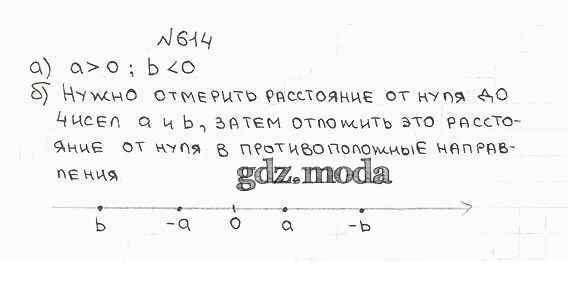 №614
а) a > 0 ; b < 0
б) Нужно отмерить расстояние от нуля до
чисел a и b, затем отложить это рассто-
яние от нуля в противоположные направ-
ления
gdz.moda
b -a 0 a -b